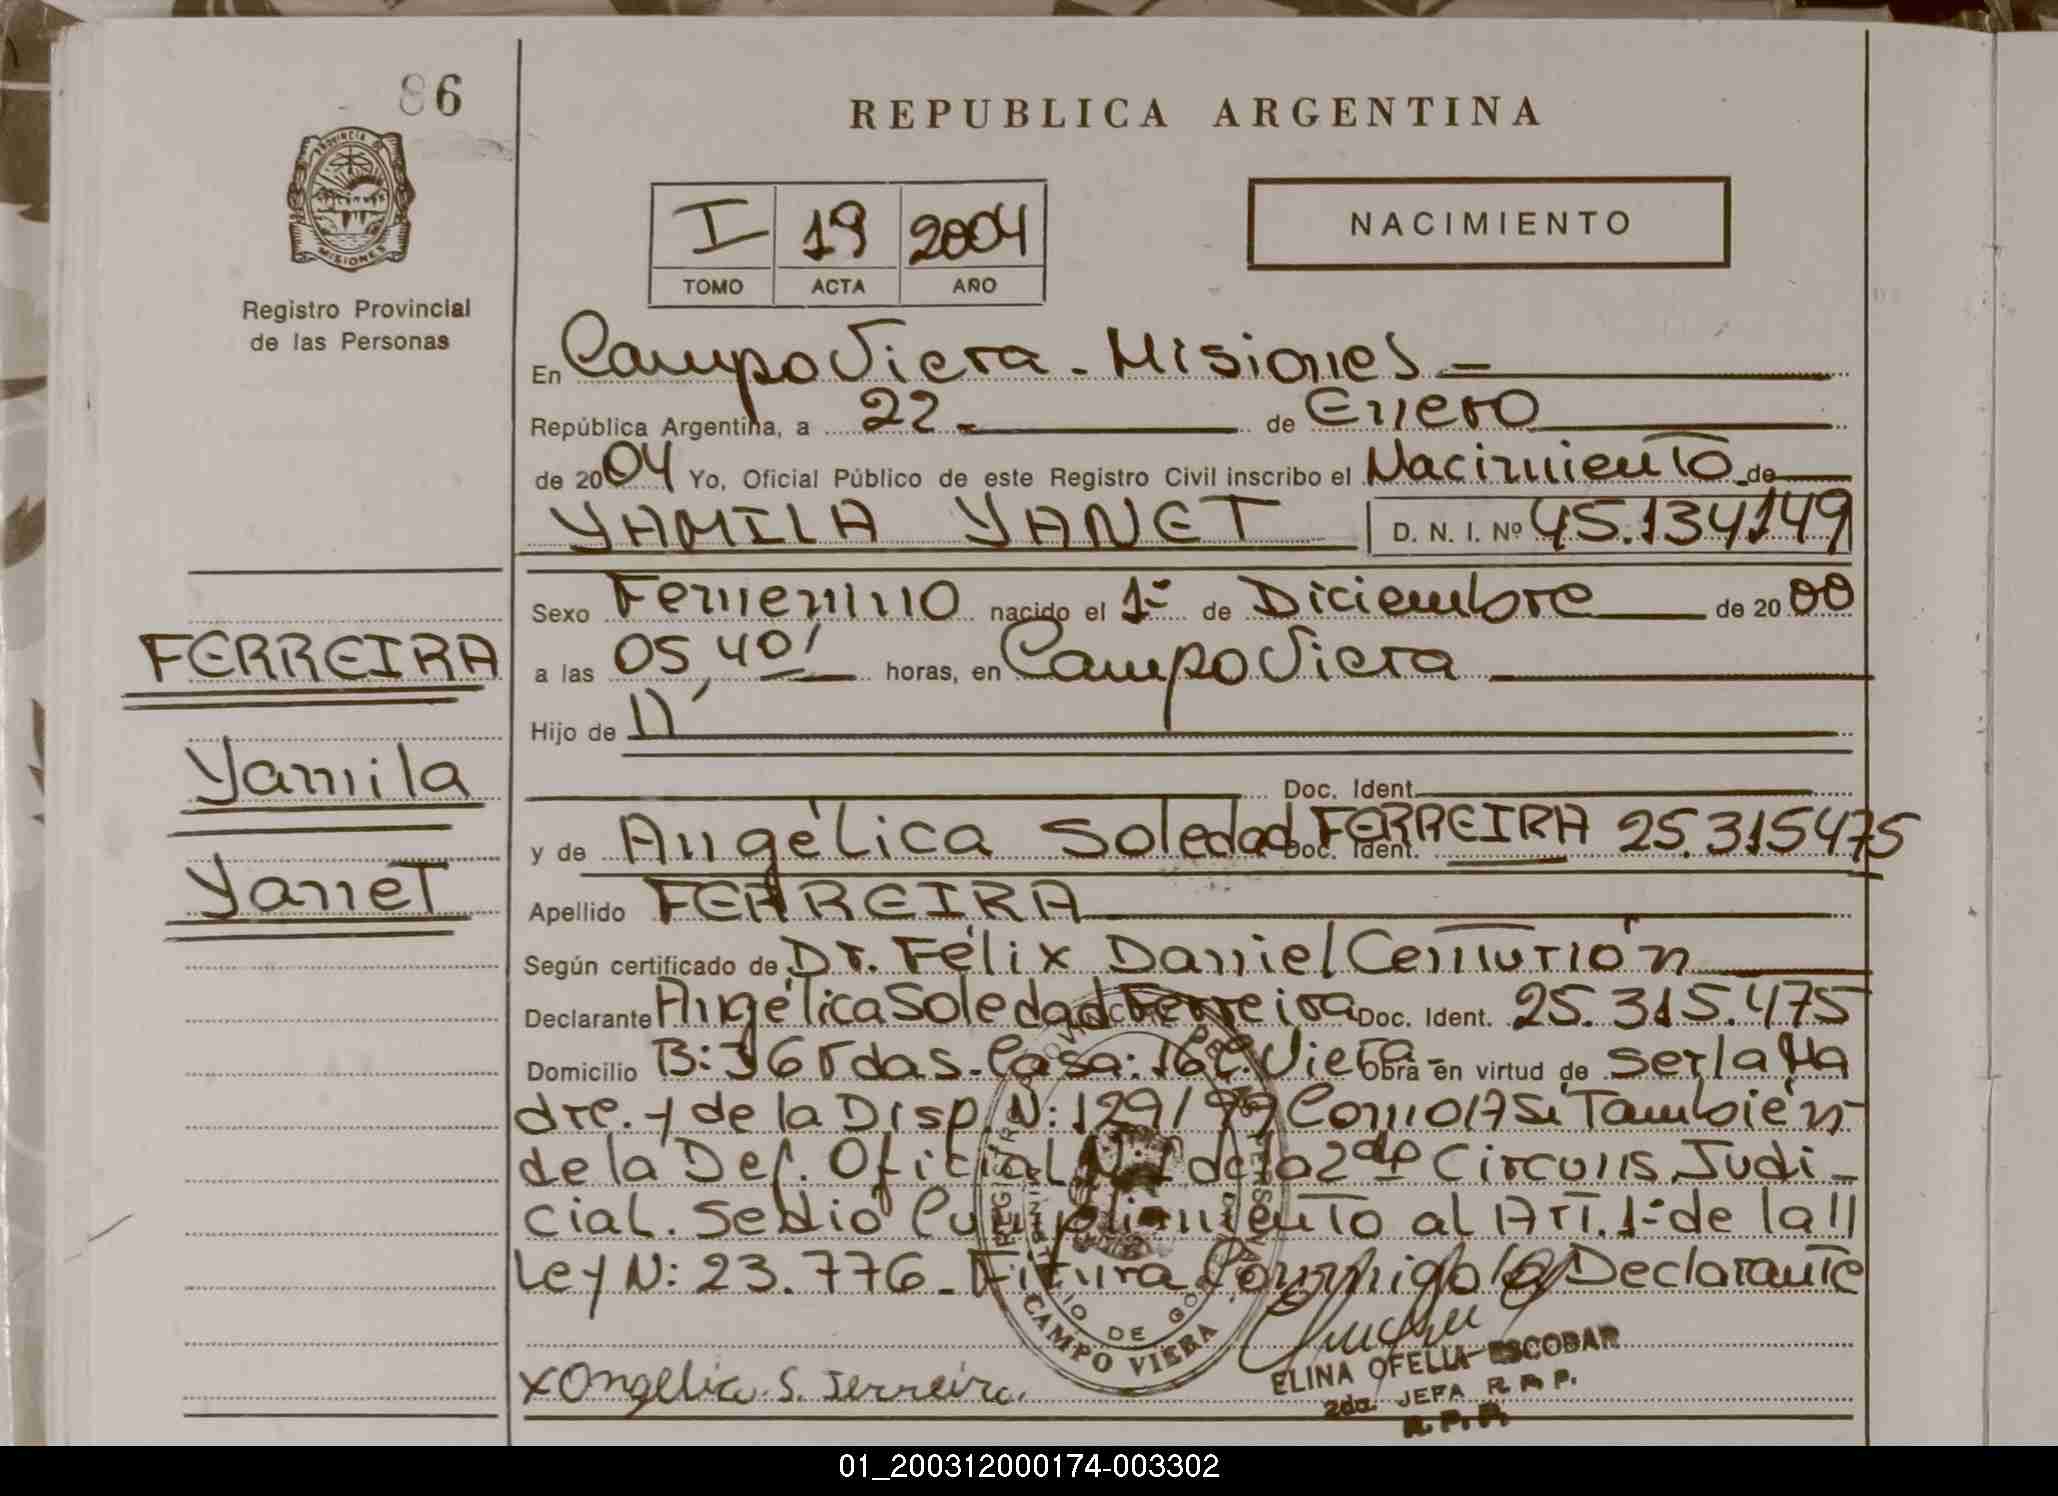 86
REPUBLICA ARGENTINA
PROVINCIA
MISIONES
Registro Provincial
de las Personas
I 19 2004
TOMO ACTA AÑO
NACIMIENTO
En Campo Viera - Misiones -
República Argentina, a 22 de Enero
de 2004 Yo, Oficial Público de este Registro Civil inscribo el Nacimiento de
YAMILA YANET D. N. I. Nº 45.134149
Sexo Femenino nacido el 1º de Diciembre de 2000
FERREIRA
a las 05,40' horas, en Campo Viera
Hijo de
Yamila
Doc. Ident.
y de Angélica Soledad FERREIRA Doc. Ident. 25.315475
Yanet
Apellido FERREIRA
Según certificado de Dr. Félix Daniel Centurión
Declarante Angélica Soledad Ferreira Doc. Ident. 25.315.475
Domicilio B: 36 Vdas. Casa: 16 C. Viera - Obra en virtud de ser la Ma
dre. y de la Disp. N: 129/99 Como Asi También
de la Def. Oficial N: 1 de la 2da Circuns. Judi -
cial. Se dió Cumplimiento al Art. 1º de la
Ley N: 23.776 - Firma Conmigo la Declarante
REGISTRO PROVINCIAL DE LAS PERSONAS
MINISTERIO DE GOBIERNO
CAMPO VIERA
x Angelica S. Ferreira.
ELINA OFELIA ESCOBAR
2da. JEFA R. P. P.
R. P. P.
01_200312000174-003302